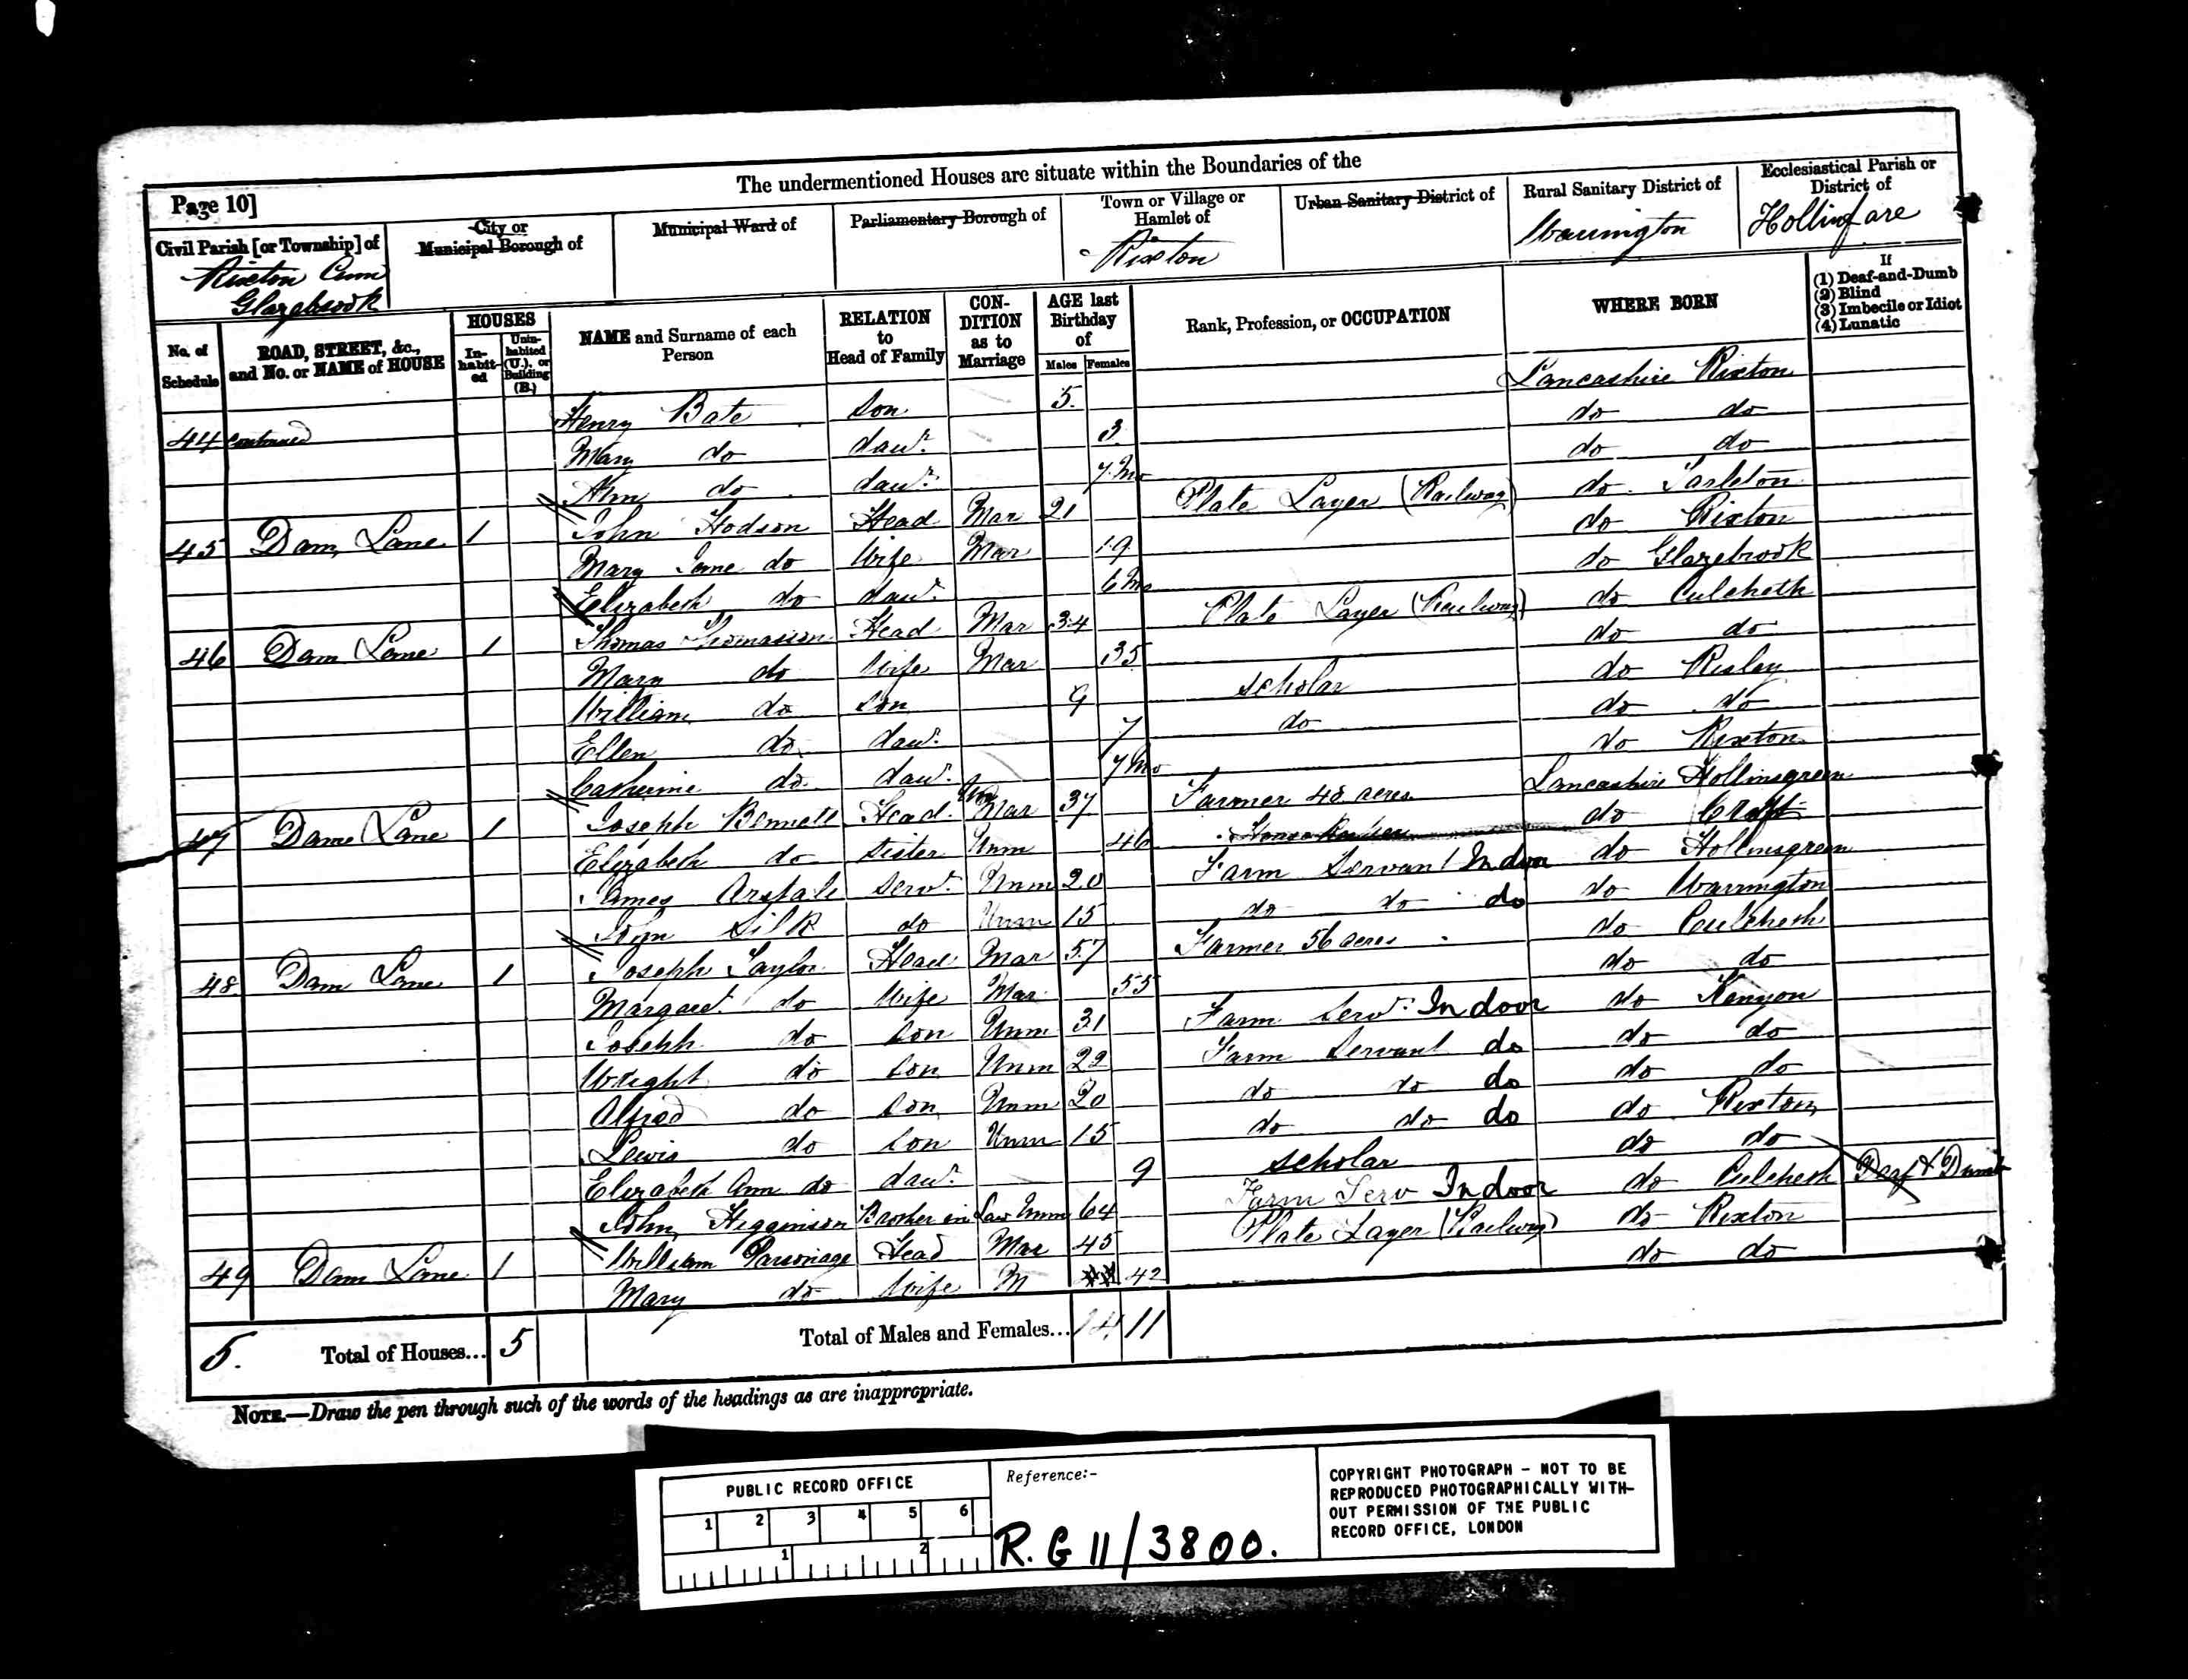 The undermentioned Houses are situate within the Boundaries of the
Page 10]
Civil Parish [or Township] of
Rixton Cum
Glazebrook
City or
Municipal Borough of
Municipal Ward of
Parliamentary Borough of
Town or Village or
Hamlet of
Rixton
Urban Sanitary District of
Rural Sanitary District of
Warrington
Ecclesiastical Parish or
District of
Hollinfare
No. of
Schedule
ROAD, STREET, &c.,
and No. or NAME of HOUSE
HOUSES
In-
habit-
ed
Unin-
habited
(U.), or
Building
(B.)
NAME and Surname of each
Person
RELATION
to
Head of Family
CON-
DITION
as to
Marriage
AGE last
Birthday
of
Males Females
Rank, Profession, or OCCUPATION
WHERE BORN
If
(1) Deaf-and-Dumb
(2) Blind
(3) Imbecile or Idiot
(4) Lunatic
44 continued Henry Bate Son 5 Lancashire Rixton
Mary do daur. 3 do do
Ann do daur. 7 Mo do do
45 Dam Lane 1 John Hodson Head Mar 21 Plate Layer (Railway) do Tarleton
Mary Jane do Wife Mar 19 do Rixton
Elizabeth do daur. 6 Mo do Glazebrook
46 Dam Lane 1 Thomas Thomasson Head Mar 34 Plate Layer (Railway) do Culcheth
Mary do Wife Mar 35 do do
William do Son 9 scholar do Risley
Ellen do daur. 7 do do do
Catherine do daur. 7 Mo do Rixton
47 Dam Lane 1 Joseph Bennett Head Unm Mar 37 Farmer 48 acres Lancashire Hollinsgreen
Elizabeth do Sister Unm 46 do Croft
James Serv. Unm 20 Farm Servant Indoor do Hollinsgreen
John Silk do Unm 15 do do do do Warrington
48 Dam Lane 1 Joseph Taylor Head Mar 57 Farmer 56 acres do Culcheth
Margaret do Wife Mar 55 do do
Joseph do Son Unm 31 Farm Serv. Indoor do Kenyon
Wright do Son Unm 22 Farm Servant do do do
Alfred do Son Unm 20 do do do do do
Lewis do Son Unm 15 do do do do Rixton
Elizabeth Ann do daur. 9 scholar do do
John Higginson Brother in Law Unm 64 Farm Serv Indoor do Culcheth Deaf & Dumb
49 Dam Lane 1 William Parsonage Head Mar 45 Plate Layer (Railway) do Rixton
Mary do Wife M 42 do do
5. Total of Houses... 5 Total of Males and Females... 14 11
NOTE.—Draw the pen through such of the words of the headings as are inappropriate.
PUBLIC RECORD OFFICE
1 2 3 4 5 6
1 2
Reference:-
R.G 11/3800.
COPYRIGHT PHOTOGRAPH - NOT TO BE
REPRODUCED PHOTOGRAPHICALLY WITH-
OUT PERMISSION OF THE PUBLIC
RECORD OFFICE, LONDON